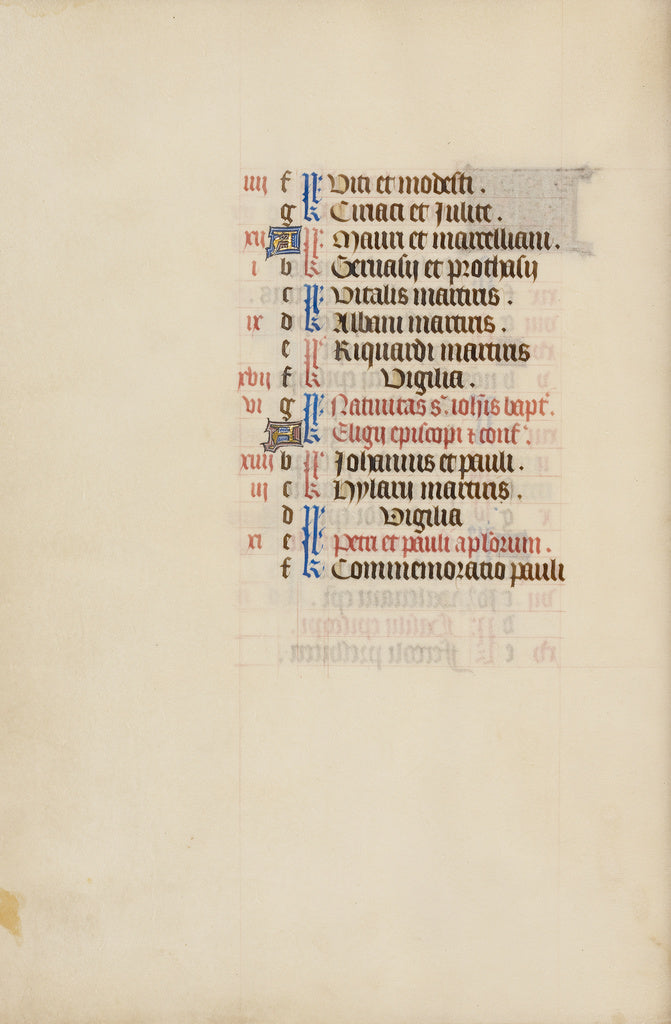 iiij f N: Viti et modesti .
g k Ciriaci et Julite .
xij A N: Mauri et marcelliani .
i b k Geruasij et prothasij
c N: Vitalis martiris .
ix d k Albani martiris .
e N: Riquardi martiris
xvij f k Vigilia .
vi g N: Natiuitas s. ioh̄is bapt̄ .
A k Eligij episcopi ⁊ conf̄ .
xiiij b N: Johannis et pauli .
iij c k Hylarij martiris .
d N: Vigilia
xi e N: Petri et pauli apl̄orum .
f k Commemoratio pauli